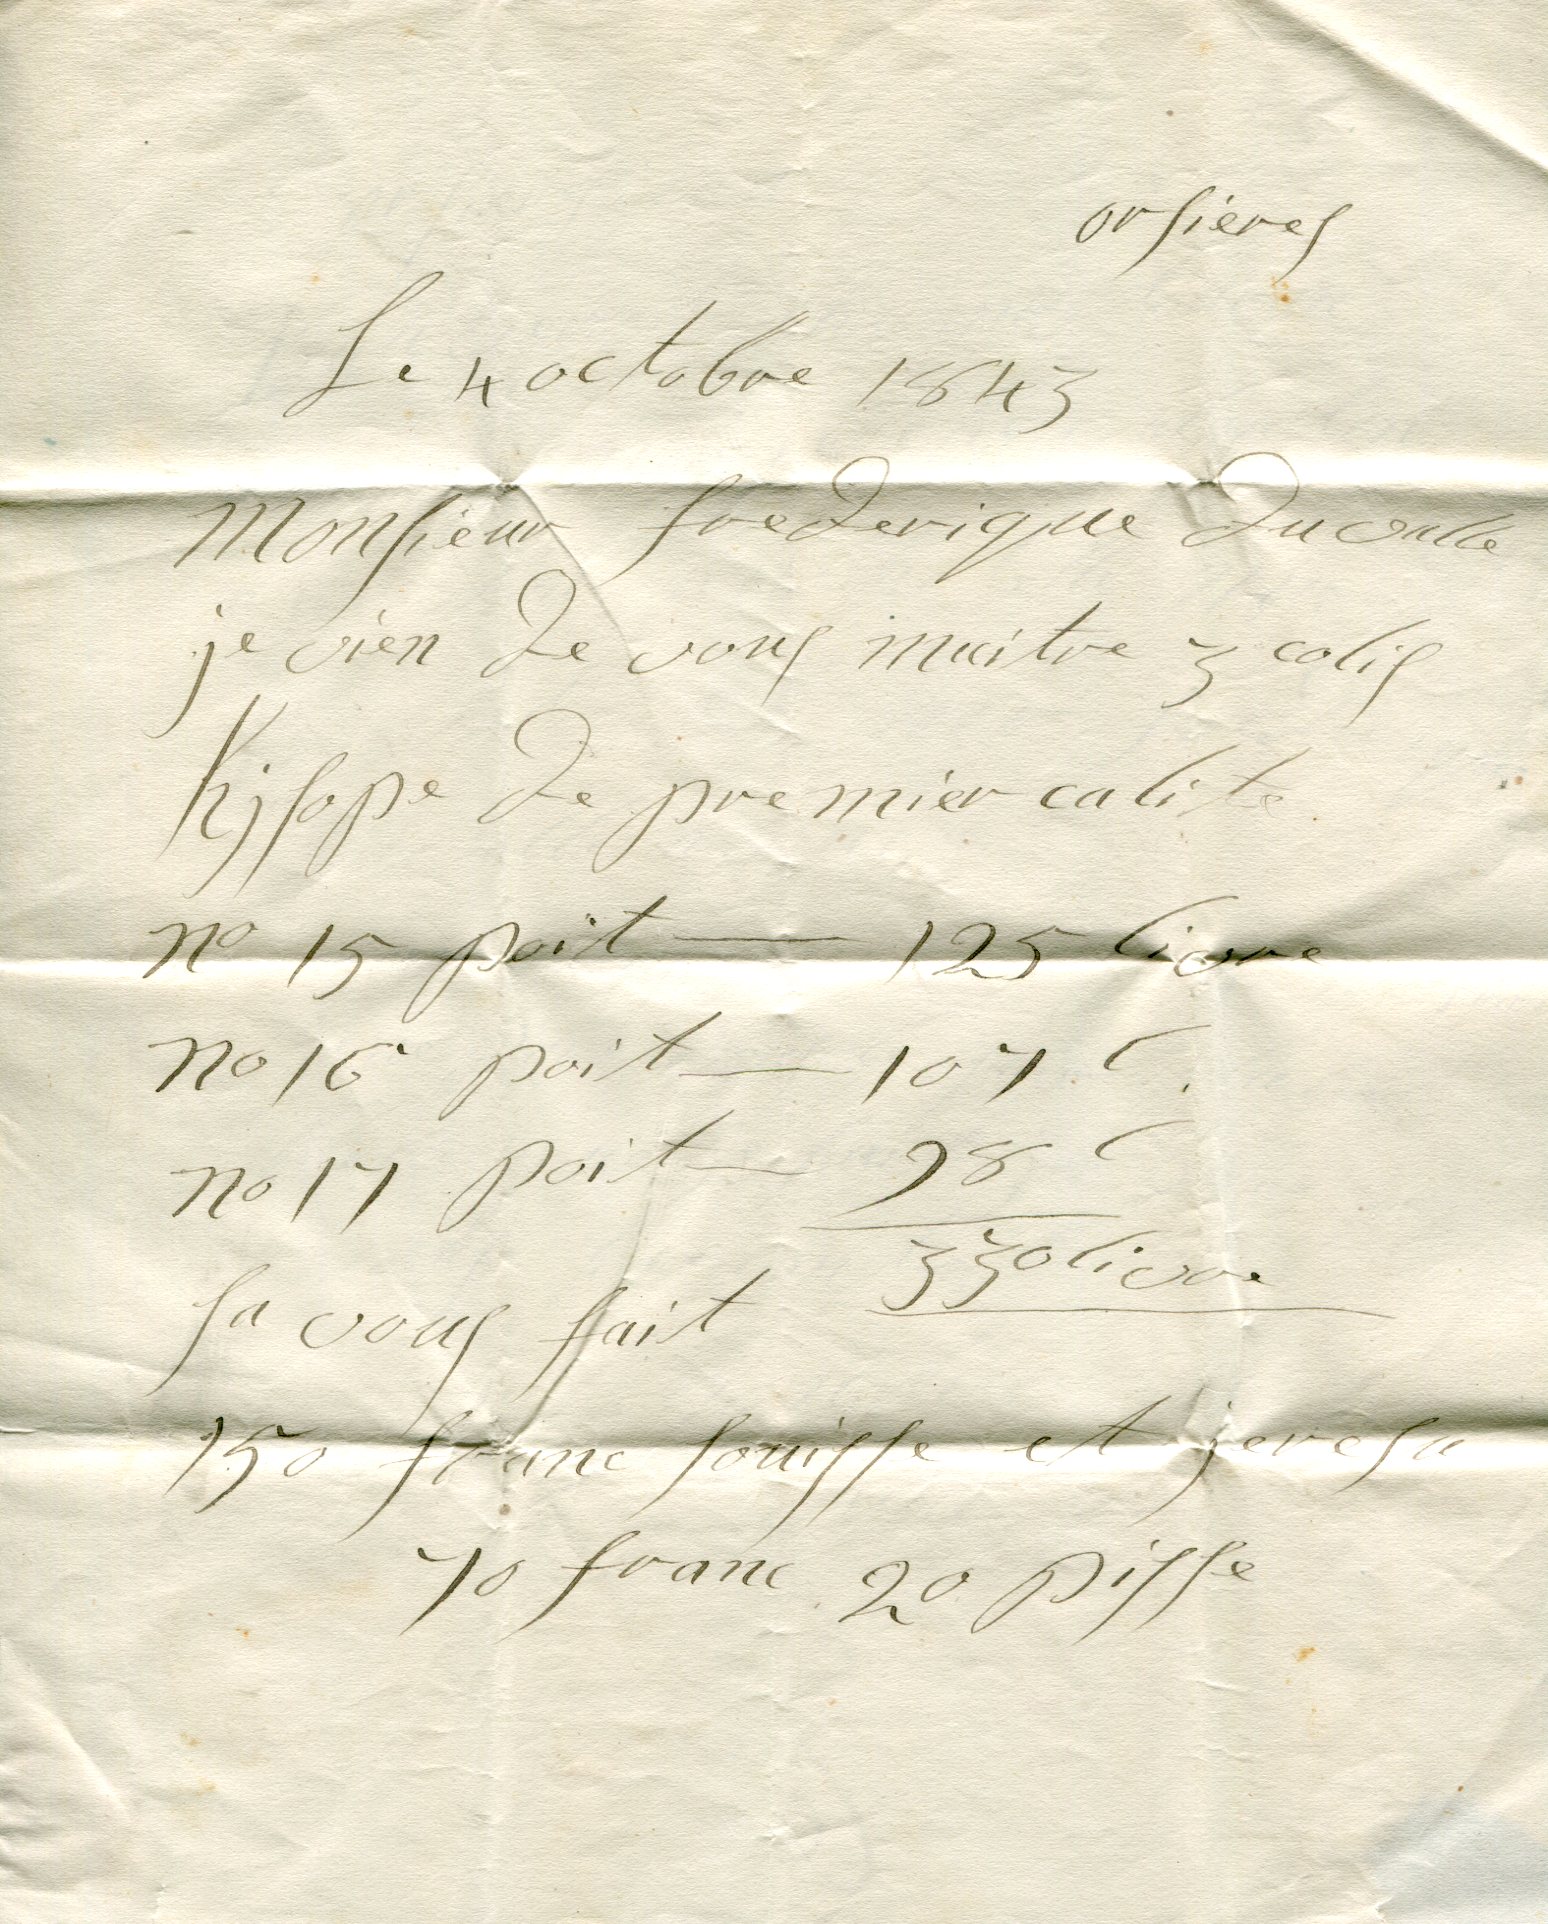 orsieres
Le 4 octobre 1843
Monsieur frederique Duvalle
je vien de vous maitre 3 colis
hjsope de premier calite
no 15 poit — 125 livre
no 16 poit — 107 l
no 17 poit — 98 l
330 livre
sa vous fait
150 franc souisse et je resu
70 franc 20 pisse